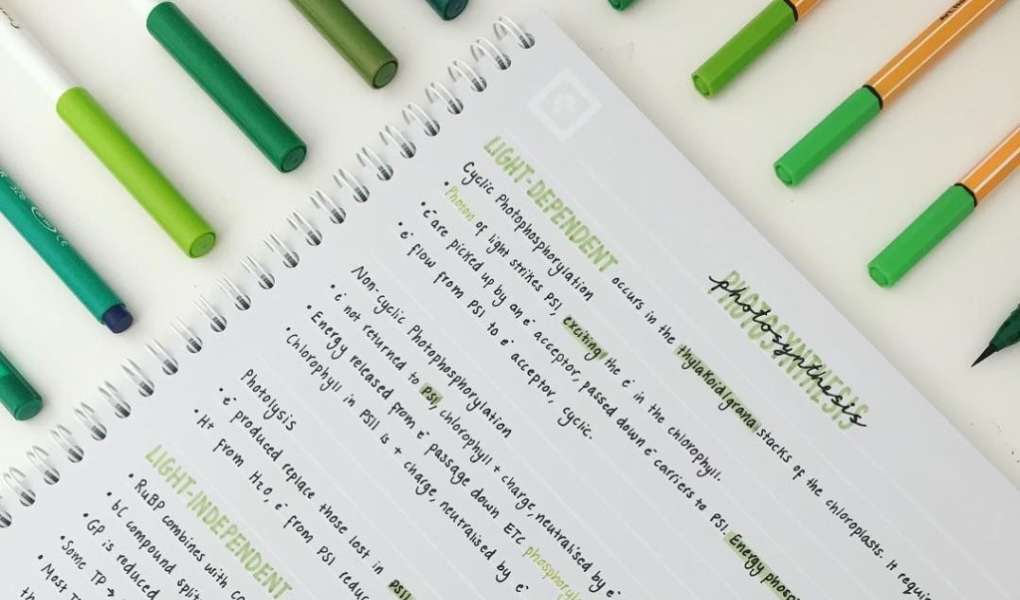 PHOTOSYNTHESIS
photosynthesis
LIGHT-DEPENDENT occurs in the thylakoid grana stacks of the chloroplasts. It
Cyclic Photophosphorylation
• Photon of light strikes PSI, exciting the e⁻ in the chlorophyll.
• e⁻ are picked up by an e⁻ acceptor, passed down e⁻ carriers to PSI. Energy
• e⁻ flow from PSI to e⁻ acceptor, cyclic.
Non-Cyclic Photophosphorylation
• e⁻ not returned to PSI, chlorophyll + charge, neutralised by e⁻
• Energy released from e⁻ passage down ETC
• Chlorophyll in PSII is + charge, neutralised by e⁻
Photolysis
• e⁻ produced replace those lost in PSII
• H+ from H2O, e⁻ from PSI
LIGHT-INDEPENDENT
• RuBP combines with
• 6C compound
• GP is reduced
• Some TP →
• Most